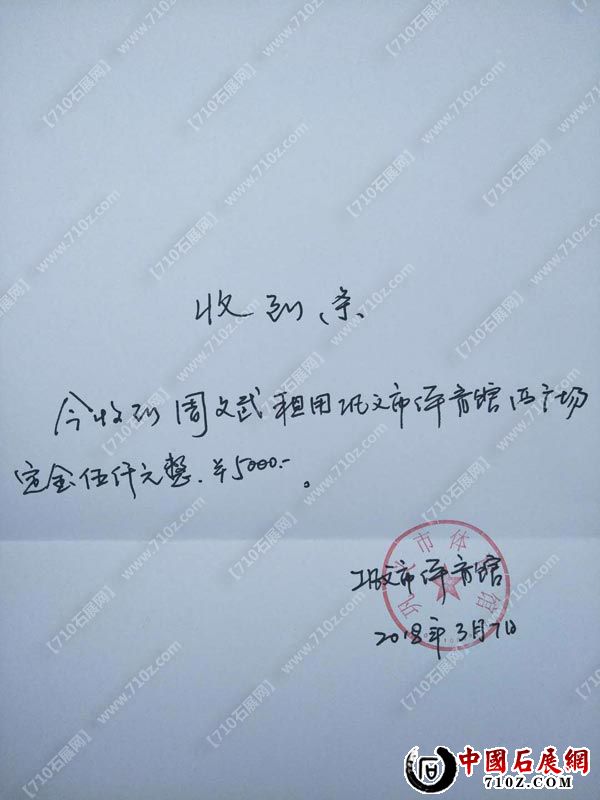 收到条
今收到周文武租用巩义市体育馆西广场
定金伍仟元整.￥5000.-。
巩义市体育馆
2018年3月7日
巩义市体育馆
【710石展网】 www.710z.com
中國石展網
710Z.COM